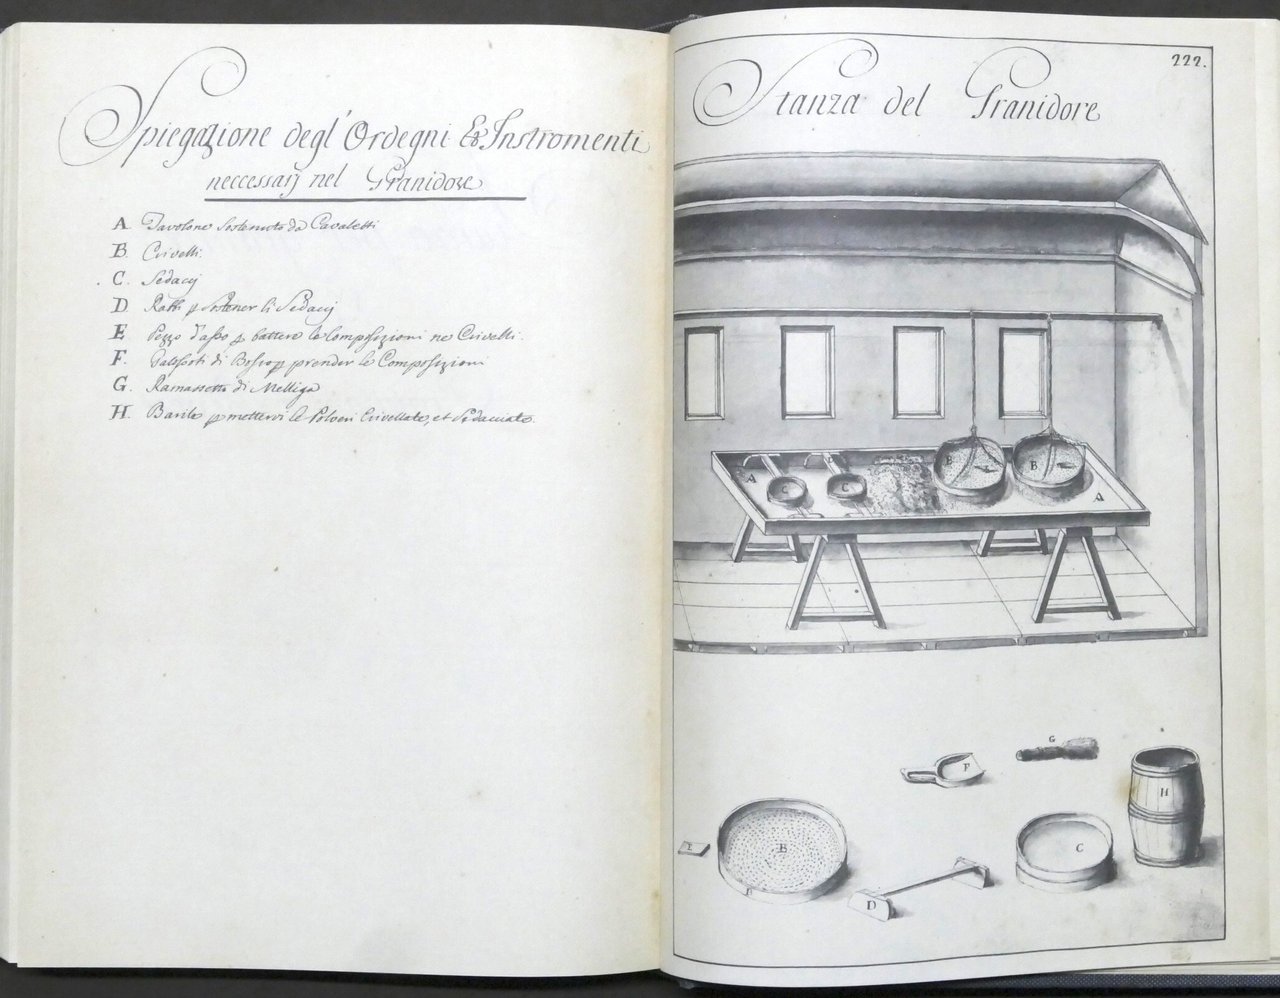 Spiegazione degl' Ordegni & Instromenti
neccessarj nel Granidore
A. Tavolone sostenuto da Cavaletti
B. Crivelli.
C. Sedacij
D. p sostener li Sedacij
E. Pezzo d'asse p battere le Composizioni ne Crivelli.
F. di Bosco p prender le Composizioni
G. Ramassetta di Melliga
H. Barile p mettervi le Polveri Crivellate, et Sedacciate.
222.
Stanza del Granidore
B
B
A
C
C
A
G
F
H
E
B
C
D